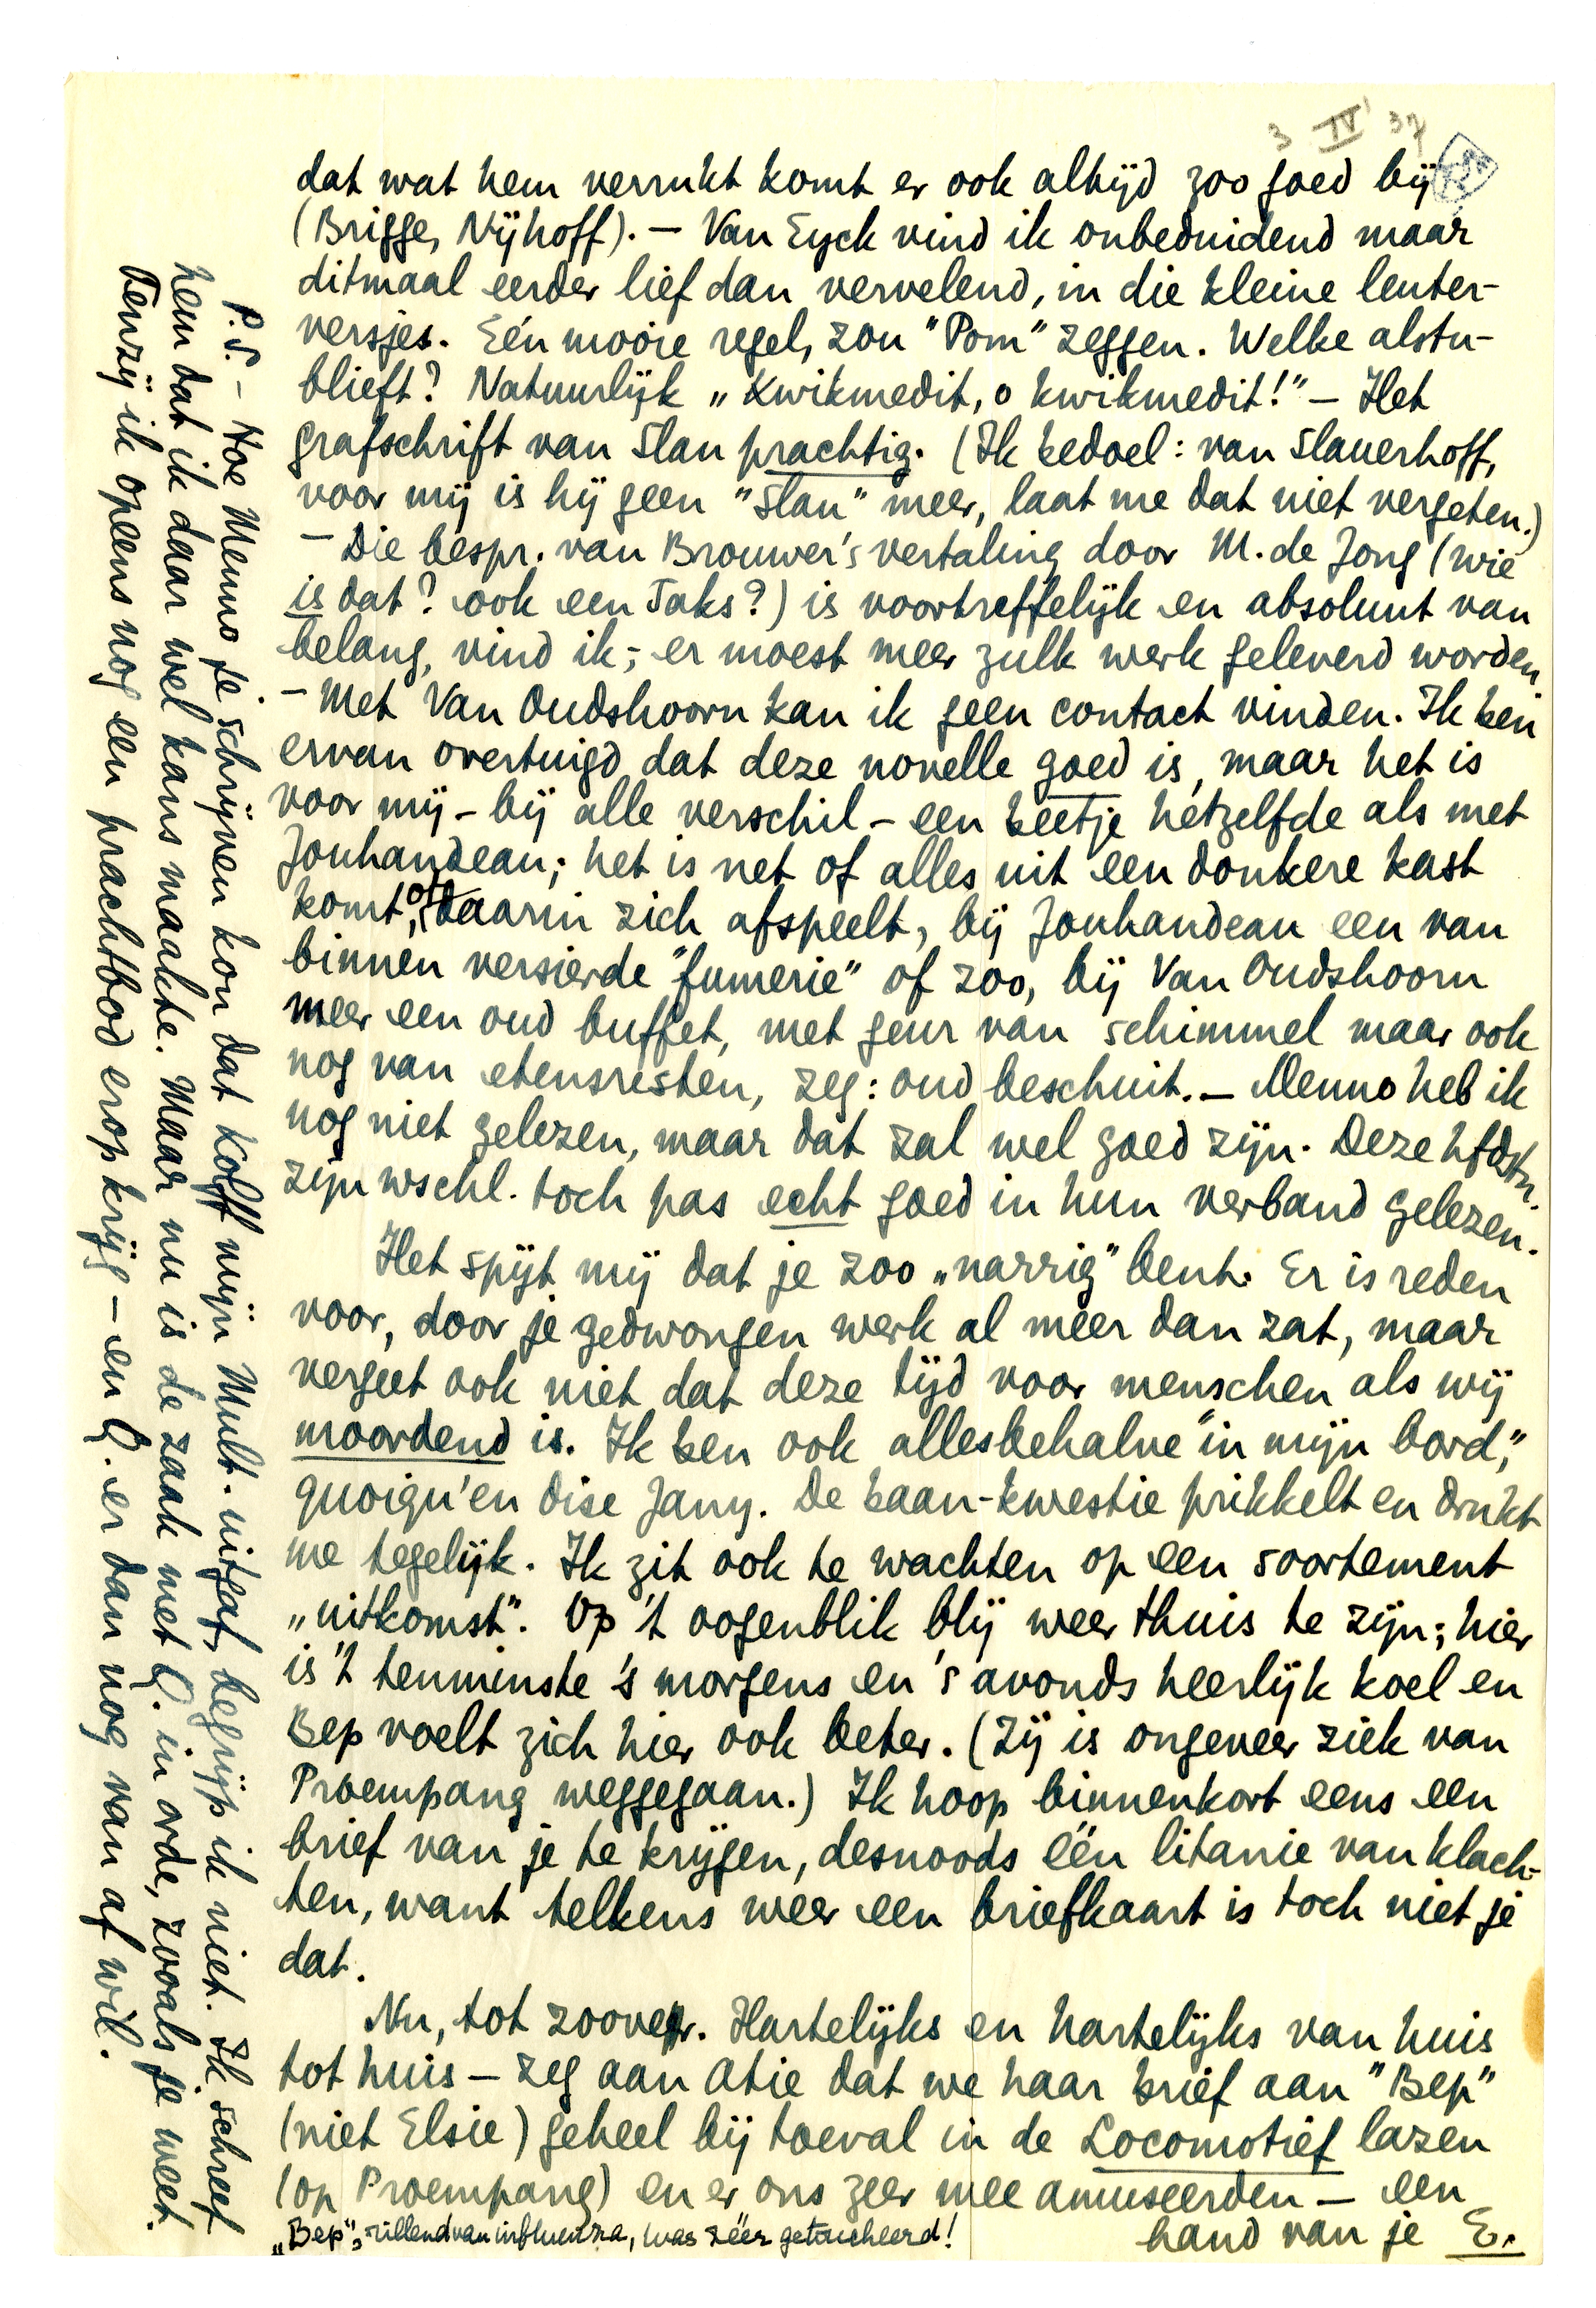 3 IV 37
dat wat hem verrukt komt er ook altijd zoo goed bij
(Brigge, Nijhoff). — Van Eyck vind ik onbeduidend maar
ditmaal eerder lief dan vervelend, in die kleine leuter-
versjes. Eén mooie regel, zou "Pom" zeggen. Welke alstu-
blieft? Natuurlijk „Kwikmedit, o kwikmedit!" — Het
grafschrift van Slau prachtig. (Ik bedoel: van Slauerhoff,
voor mij is hij geen "Slau" meer, laat me dat niet vergeten.)
— Die bespr. van Brouwer's vertaling door M. de Jong (wie
is dat? ook een Jaks?) is voortreffelijk en absoluut van
belang, vind ik; er moest meer zulk werk geleverd worden.
— Met Van Oudshoorn kan ik geen contact vinden. Ik ben
ervan overtuigd dat deze novelle goed is, maar het is
voor mij – bij alle verschil – een beetje hétzelfde als met
Jouhandeau; het is net of alles uit een donkere kast
komt, of daarin zich afspeelt, bij Jouhandeau een van
binnen versierde "fumerie" of zoo, bij Van Oudshoorn
meer een oud buffet, met geur van schimmel maar ook
nog van etensresten, zeg: oud beschuit. — Menno heb ik
nog niet gelezen, maar dat zal wel goed zijn. Deze hfdstn.
zijn wschl. toch pas echt goed in hun verband gelezen.
Het spijt mij dat je zoo „narrig" bent. Er is reden
voor, door je gedwongen werk al meer dan zat, maar
vergeet ook niet dat deze tijd voor menschen als wij
moordend is. Ik ben ook allesbehalve "in mijn bord",
quoiqu'en dise Jany. De baan-kwestie prikkelt en drukt
me tegelijk. Ik zit ook te wachten op een soortement
„uitkomst". Op 't oogenblik blij weer thuis te zijn; hier
is 't tenminste 's morgens en 's avonds heerlijk koel en
Bep voelt zich hier ook beter. (Zij is ongeveer ziek van
Proempang weggegaan.) Ik hoop binnenkort eens een
brief van je te krijgen, desnoods één litanie van klach-
ten, want telkens weer een briefkaart is toch niet je
dat.
Nu, tot zoover. Hartelijks en hartelijks van huis
tot huis — zeg aan Atie dat we haar brief aan "Bep"
(niet Elsie) geheel bij toeval in de Locomotief lazen
(op Proempang) en er ons zeer mee amuseerden — een
hand van je E.
„Bep", rillend van influenza, was zéér getoucheerd!
P.S. – Hoe Menno je schrijven kon dat Kolff mijn Mult. uitgaf, begrijp ik niet. Ik schreef
hem dat ik daar wel kans maakte. Maar nu is de zaak met Q. in orde, zooals je weet.
Tenzij ik opeens nog een prachtbod erop krijg – en Q. er dan nog van af wil.